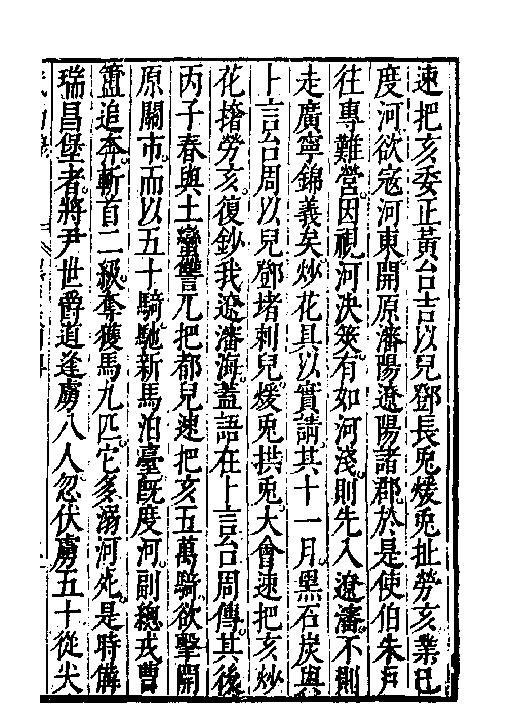 速把亥委正黃台吉以兒鄧長兎煖兎扯勞亥業已
度河欲寇河東開原瀋陽遼陽諸郡於是使伯朱戶
往專難營因視河決筴有如河淺則先入遼瀋不則
走廣寧錦義矣炒花具以實請其十一月黑石炭與
卜言台周以兒鄧堵剌兒煖兎拱兎大會速把亥炒
花㨋勞亥復鈔我遼瀋海蓋語在卜言台周傳其後
丙子春與土蠻讐兀把都兒速把亥五萬騎欲擊開
原關市而以五十騎馳新馬泊臺旣度河副總戎曹
簠追奔斬首二級奪獲馬九匹它多溺河死是時備
瑞昌堡者將尹世爵道逢虜八人忽伏虜五十從尖